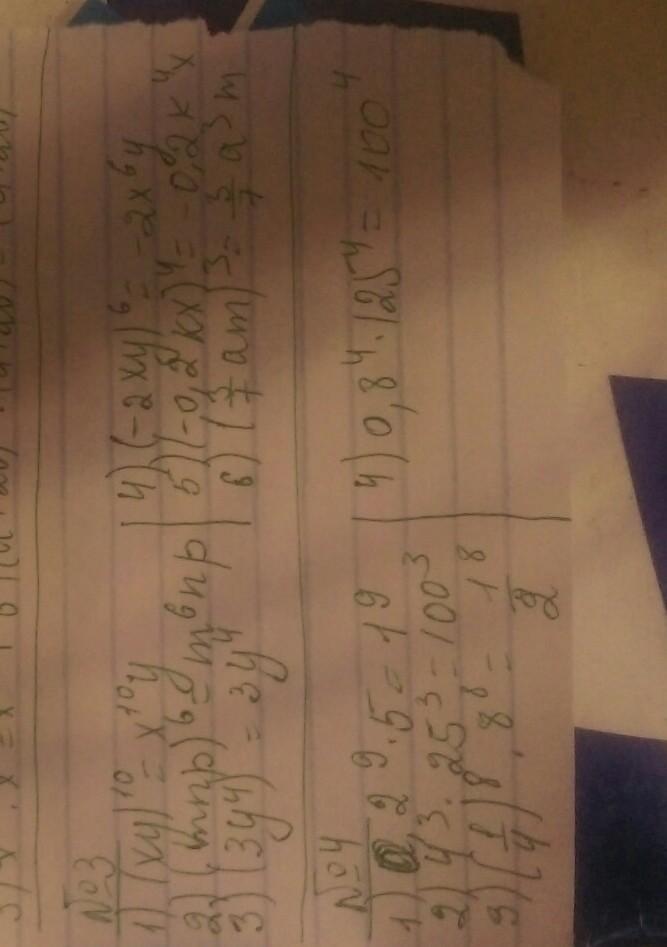 №3
1) (xy)¹⁰ = x¹⁰y
2) (mnp)⁶ = m⁶np
3) (3y⁴) = 3y⁴
4) (-2xy)⁶ = -2x⁶y
5) (-0,2kx)⁴ = -0,2k⁴x
6) (3/7 am)³ = 3/7 a³m
№4
1) 2⁹ · 5 = 1⁹
2) 4³ · 25³ = 100³
3) (1/4)⁸ · 8⁸ = 1/2⁸
4) 0,8⁴ · 125⁴ = 100⁴